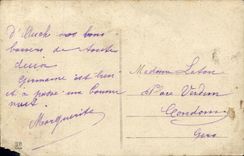 D'Auch nos bons
baisers de toute
Germaine est bien
et a passé une bonne
nuit.
Marguerite
Madame Laton
Place Verdun
Condom
Gers